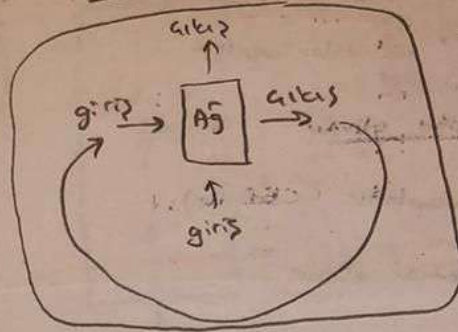 çıkış
giriş → Ağ → çıkış
giriş